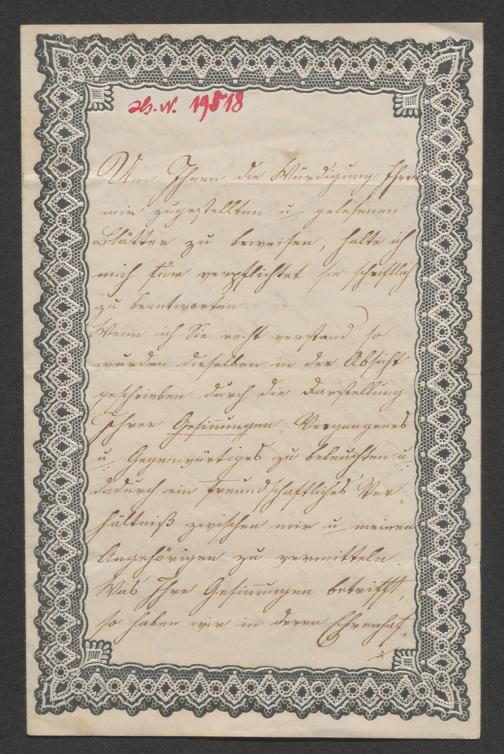 H. N. 19518
Um Ihnen die Würdigung Ihrer
mir zugestellten u. gelesenen
Blätter zu beweisen, halte ich
mich für verpflichtet sie schriftlich
zu beantworten.
Wenn ich Sie recht verstand, so
wurden dieselben in der Absicht
geschrieben durch die Darstellung
Ihrer Gesinnungen, Vergangenes
u. Gegenwärtiges zu beleuchten u.
dadurch ein freundschaftliches Ver-
hältniß zwischen mir u. meinen
Angehörigen zu vermitteln.
Was Ihre Gesinnungen betrifft,
so haben wir in deren Ehrenhaf-